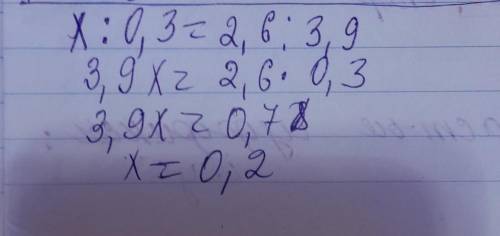 x : 0,3 = 2,6 : 3,9
3,9x = 2,6 · 0,3
3,9x = 0,78
x = 0,2